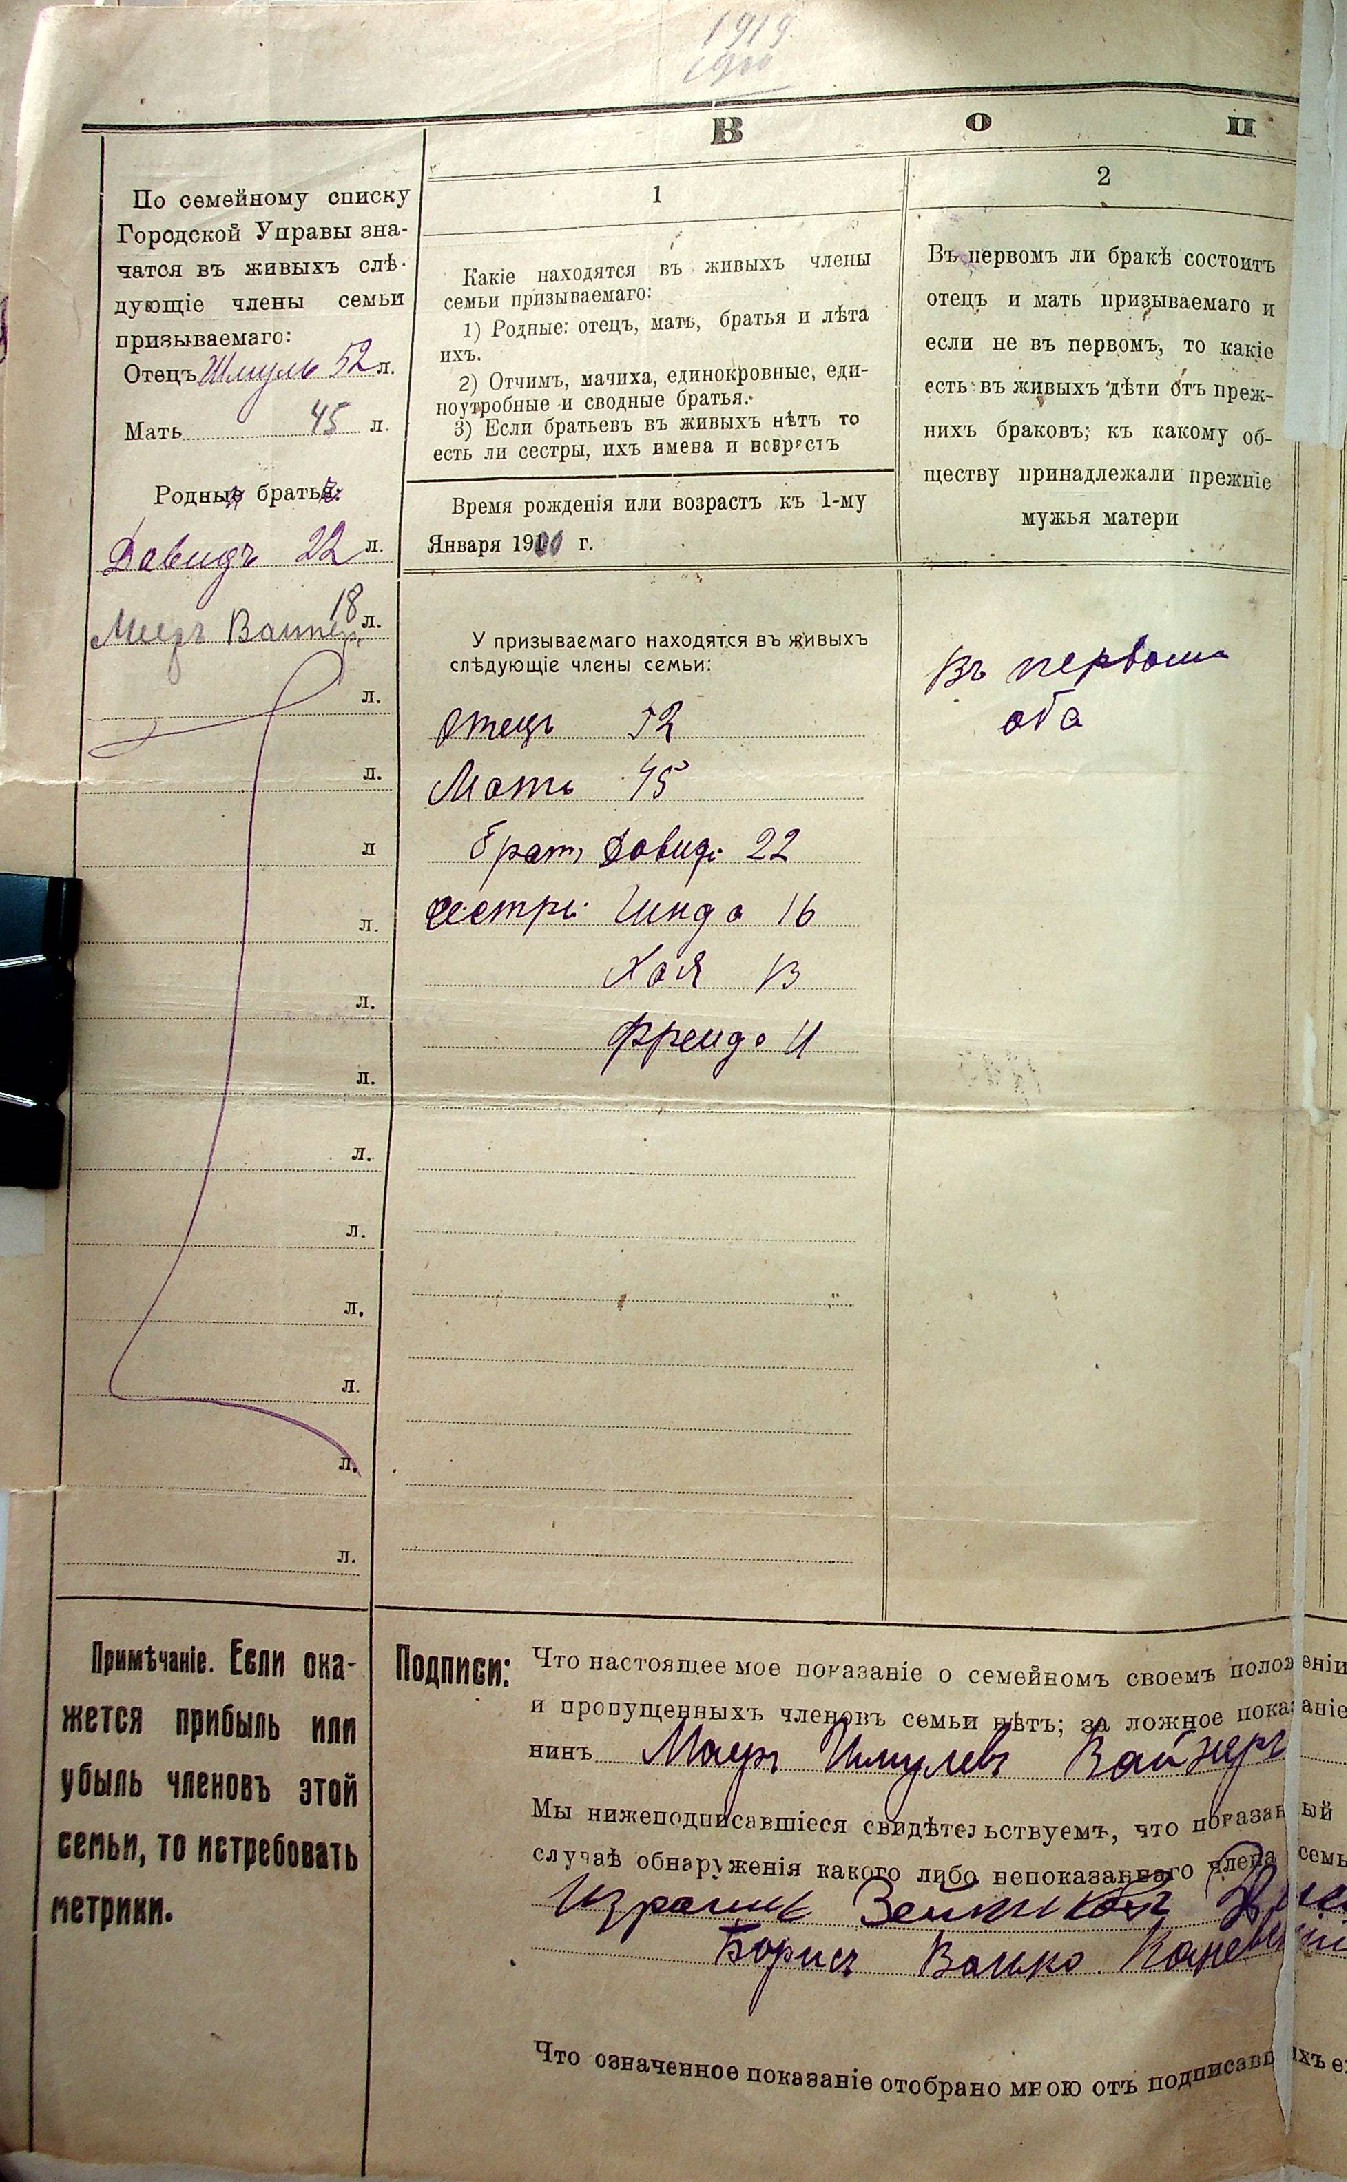 1919
В о п
По семейному списку
Городской Управы зна-
чатся въ живыхъ слѣ-
дующіе члены семьи
призываемаго:
Отецъ Шмуль 52 л.
Мать 45 л.
Родные братья:
Давидъ 22 л.
18 л.
л.
л.
л
л.
л.
л.
л.
л.
л.
л.
л.
л.
1
Какіе находятся въ живыхъ члены
семьи призываемаго:
1) Родные: отецъ, мать, братья и лѣта
ихъ.
2) Отчимъ, мачиха, единокровные, еди-
ноутробные и сводные братья.
3) Если братьевъ въ живыхъ нѣтъ то
есть ли сестры, ихъ имена и возрастъ
Время рожденія или возрастъ къ 1-му
Января 19 г.
У призываемаго находятся въ живыхъ
слѣдующіе члены семьи:
Отецъ 52
Мать 45
братъ Давидъ 22
сестры Гинда 16
Хая 13
Фрейда 11
2
Въ первомъ ли бракѣ состоитъ
отецъ и мать призываемаго и
если не въ первомъ, то какіе
есть въ живыхъ дѣти отъ преж-
нихъ браковъ; къ какому об-
ществу принадлежали прежніе
мужья матери
Въ первомъ
оба
Примѣчаніе. Если ока-
жется прибыль или
убыль членовъ этой
семьи, то истребовать
метрики.
Подписи:
Что настоящее мое показаніе о семейномъ своемъ положеніи
и пропущенныхъ членовъ семьи нѣтъ; за ложное показаніе
нинъ Шмулевъ Вайнеръ
Мы нижеподписавшіеся свидѣтельствуемъ, что показанный
случаѣ обнаруженія какого либо непоказаннаго члена семь
Израиль
Борисъ Каневскій
Что означенное показаніе отобрано мною отъ подписавшихъ е